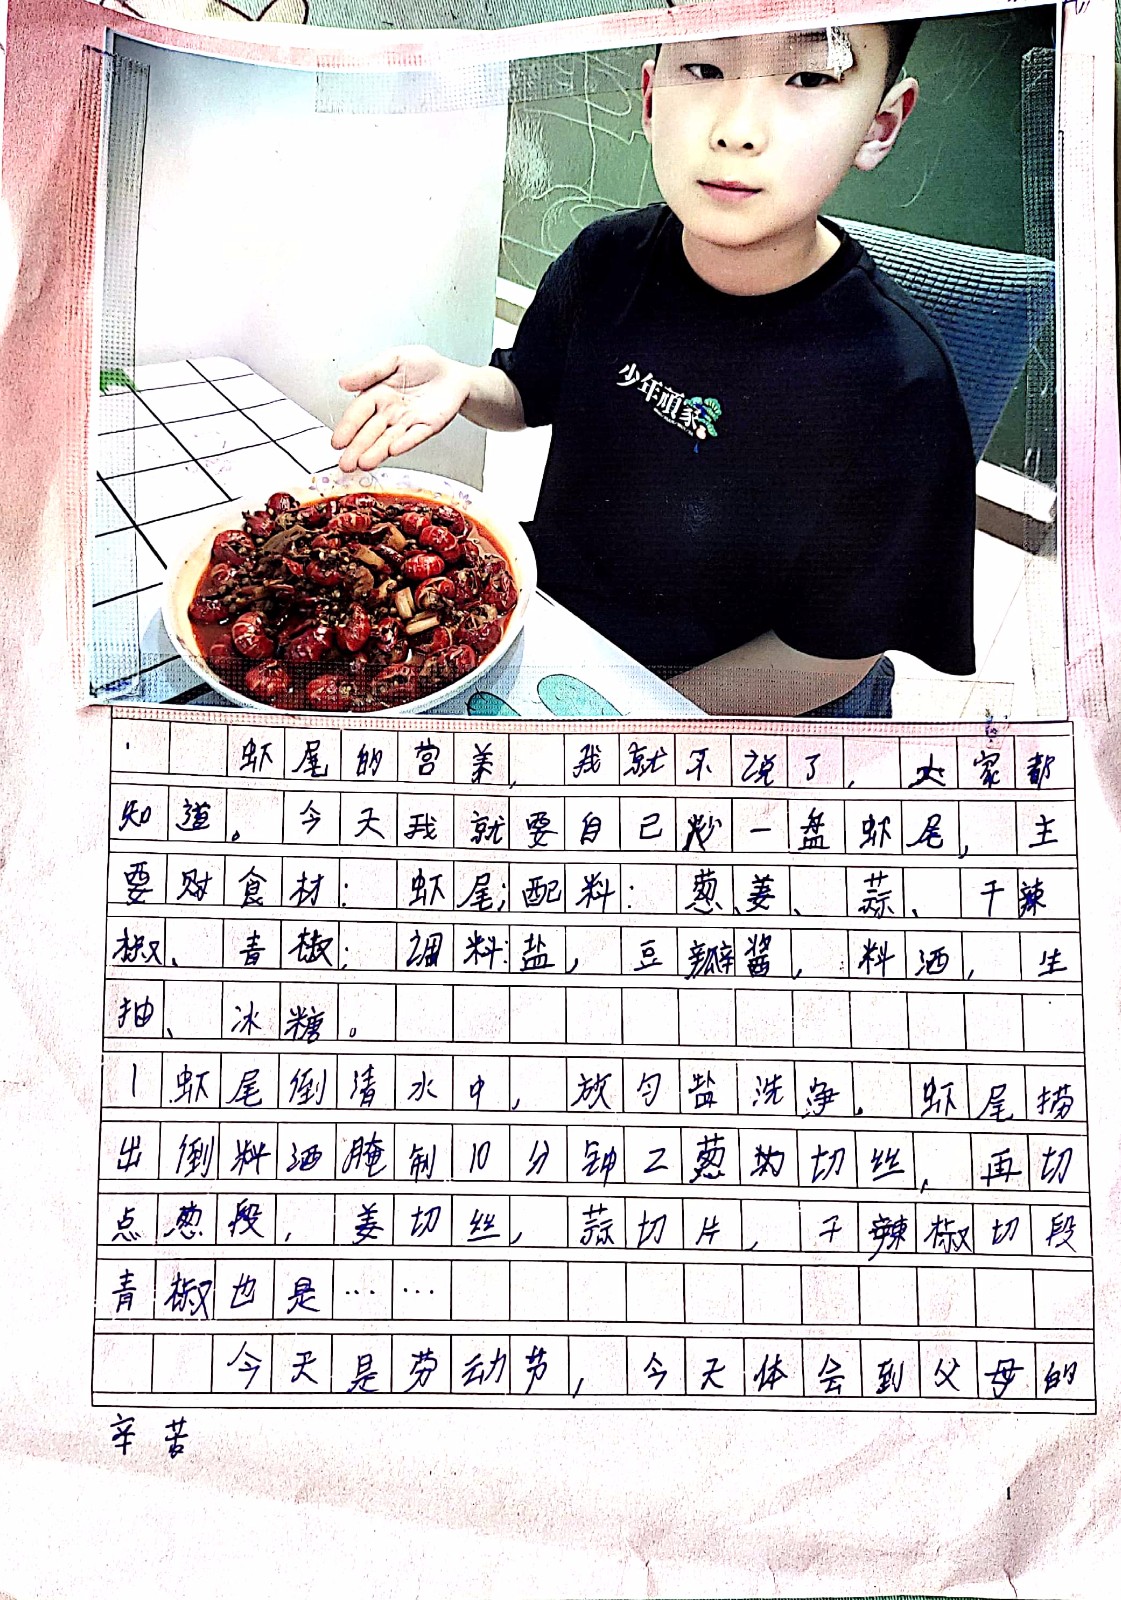 少年頑家
虾尾的营养,我就不说了,大家都
知道。今天我就要自己炒一盘虾尾,主
要财食材:虾尾;配料:葱、姜、蒜、干辣
椒、青椒;调料:盐,豆瓣酱,料酒,生
抽、冰糖。
1虾尾倒清水中,放勺盐洗净。虾尾捞
出倒料酒腌制10分钟2葱为切丝,再切
点葱段,姜切丝,蒜切片,干辣椒切段
青椒也是……
今天是劳动节,今天体会到父母的
辛苦